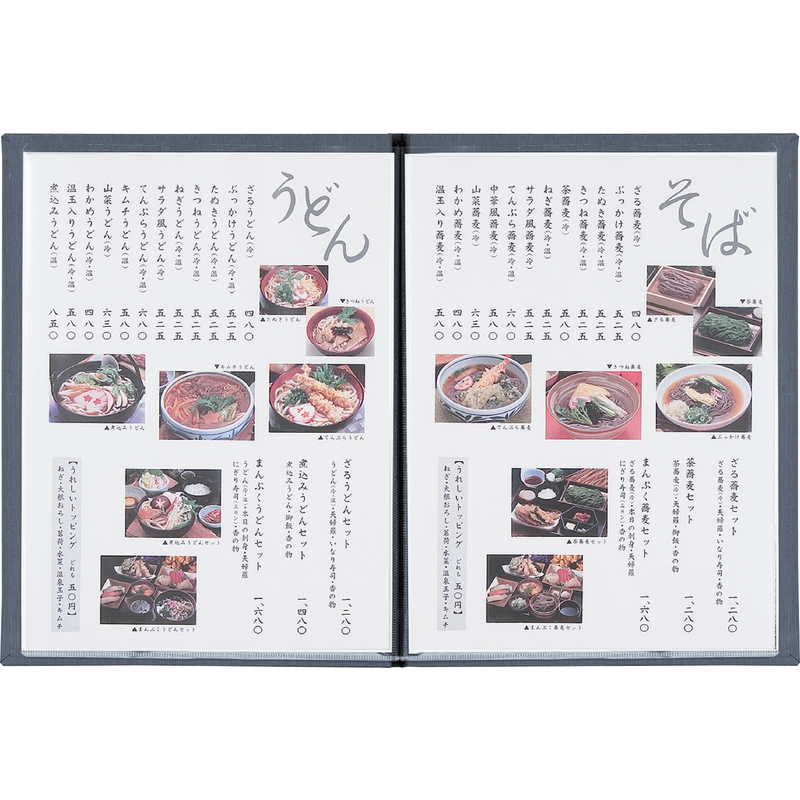 そば
ざる蕎麦(冷) 四八〇
ぶっかけ蕎麦(冷・温) 五二五
たぬき蕎麦(冷・温) 五二五
きつね蕎麦(冷・温) 五二五
茶蕎麦(冷) 五八〇
ねぎ蕎麦(冷・温) 五二五
サラダ風蕎麦(冷) 五二五
てんぷら蕎麦(冷・温) 六八〇
中華風蕎麦(冷) 五八〇
山菜蕎麦(冷) 六三〇
わかめ蕎麦(冷・温) 四八〇
温玉入り蕎麦(冷・温) 五八〇
▼茶蕎麦
▲ざる蕎麦
▼きつね蕎麦
▲てんぷら蕎麦
▲ぶっかけ蕎麦
ざる蕎麦セット 一、二八〇
ざる蕎麦(冷)・いなり寿司・香の物
茶蕎麦セット 一、二八〇
茶蕎麦(冷)・天婦羅・御飯・香の物
まんぷく蕎麦セット 一、六八〇
ざる蕎麦(冷)・本日の刺身・天婦羅
にぎり寿司(二カン)・香の物
▲茶蕎麦セット
▲まんぷく蕎麦セット
【うれしいトッピング どれも 五〇円】
ねぎ・大根おろし・茗荷・水菜・温泉玉子・キムチ
うどん
ざるうどん(冷) 四八〇
ぶっかけうどん(冷・温) 五二五
たぬきうどん(冷・温) 五二五
きつねうどん(冷・温) 五二五
ねぎうどん(冷・温) 五二五
サラダ風うどん(冷) 五二五
てんぷらうどん(冷・温) 六八〇
キムチうどん(温) 五八〇
山菜うどん(冷) 六三〇
わかめうどん(冷・温) 四八〇
温玉入りうどん(冷・温) 五八〇
煮込みうどん(温) 八五〇
▼きつねうどん
▲たぬきうどん
▼キムチうどん
▲煮込みうどん
▲てんぷらうどん
ざるうどんセット 一、二八〇
うどん(冷)・天婦羅・いなり寿司・香の物
煮込みうどんセット 一、四八〇
煮込みうどん・御飯・香の物
まんぷくうどんセット 一、六八〇
うどん(冷・温)・本日の刺身・天婦羅
にぎり寿司(二カン)・香の物
▲煮込みうどんセット
▲まんぷくうどんセット
【うれしいトッピング どれも 五〇円】
ねぎ・大根おろし・茗荷・水菜・温泉玉子・キムチ